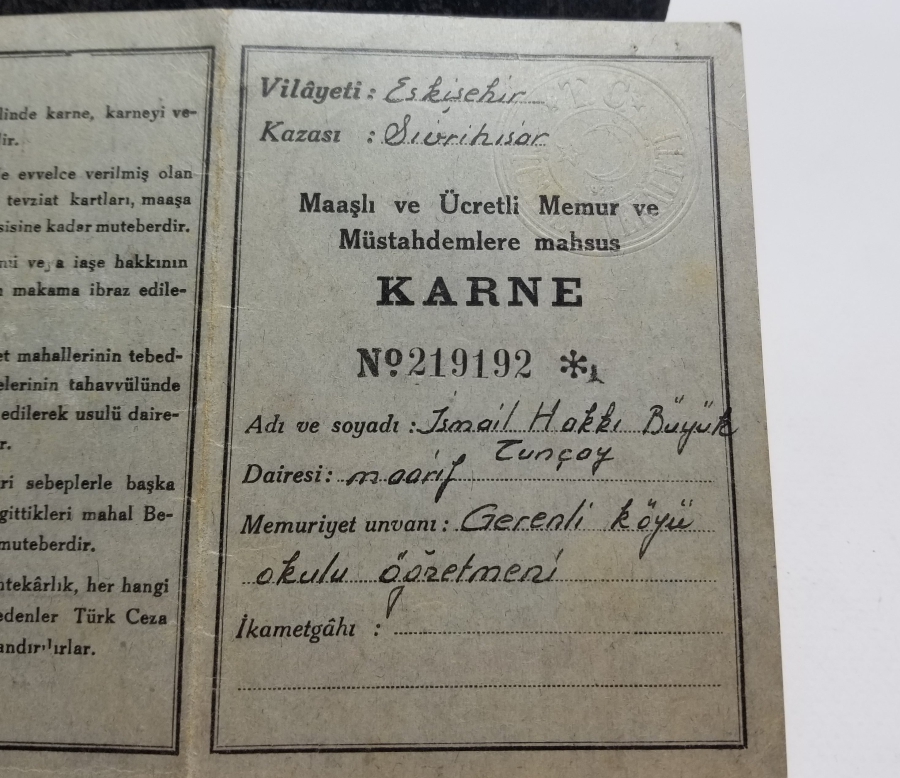 linde karne, karneyi ve-
ir.
e evvelce verilmiş olan
tevziat kartları, maaşa
sisine kadar muteberdir.
iaşe hakkının
makama ibraz edile-
et mahallerinin tebed-
elerinin tahavvülünde
edilerek usulü daire-
r.
ri sebeplerle başka
gittikleri mahal Be-
muteberdir.
tekârlık, her hangi
edenler Türk Ceza
Vilâyeti : Eskişehir
Kazası : Sivrihisar
T.C.
Maaşlı ve Ücretli Memur ve
Müstahdemlere mahsus
KARNE
Nº 219192 *
Adı ve soyadı : İsmail Hakkı Büyük
Tunçay
Dairesi : maarif
Memuriyet unvanı : Gerenli köyü
okulu öğretmeni
İkametgâhı :